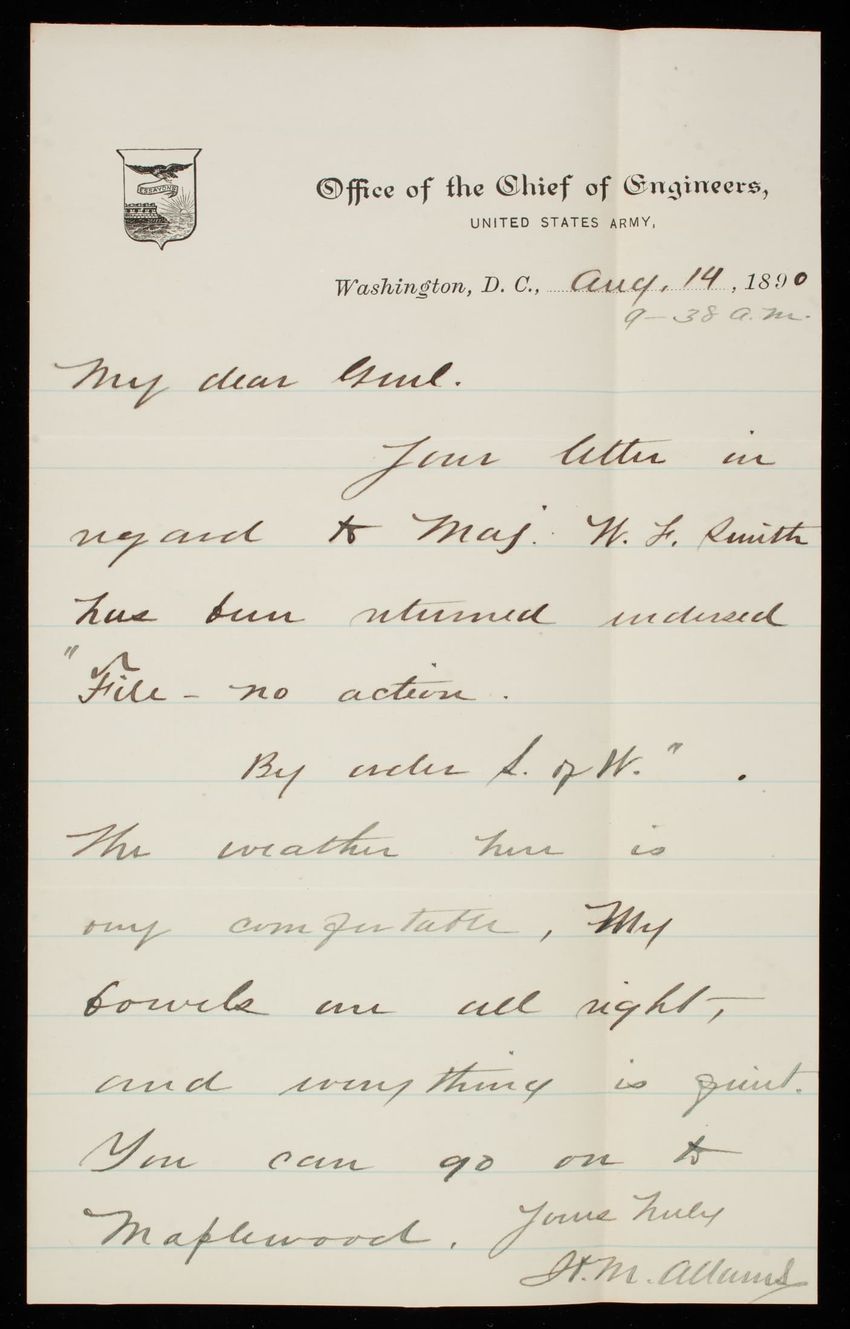 ESSAYONS
Office of the Chief of Engineers,
UNITED STATES ARMY,
Washington, D. C., Aug. 14, 1890
9-38 a.m.
My dear Genl.
Your letter in
regard to Maj. W. F. Smith
has been returned indorsed
"File - no action.
By order S. of W.".
The weather here is
very comfortable, My
bowels are all right,
and everything is quiet.
You can go on to
Maplewood. Yours truly
H. M. Adams